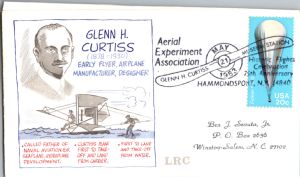 GLENN H.
CURTISS
(1878 - 1930)
EARLY FLYER, AIRPLANE
MANUFACTURER, DESIGNER
CALLED FATHER OF
NAVAL AVIATION FOR
SEAPLANE, AIRPLANE
DEVELOPMENT.
CURTISS MAN
FIRST TO TAKE-
OFF AND LAND
FROM CARRIER.
FIRST TO LAND
AND TAKE-OFF
FROM WATER.
Aerial
Experiment
Association
GLENN H. CURTISS
MAY
21
1983
MUSEUM STATION
Flights
Celebration
75th Anniversary
HAMMONDSPORT, N.Y. 14840
USA
20c
Box 2636
Winston-Salem, N. C. 27102
P. O.
LRC